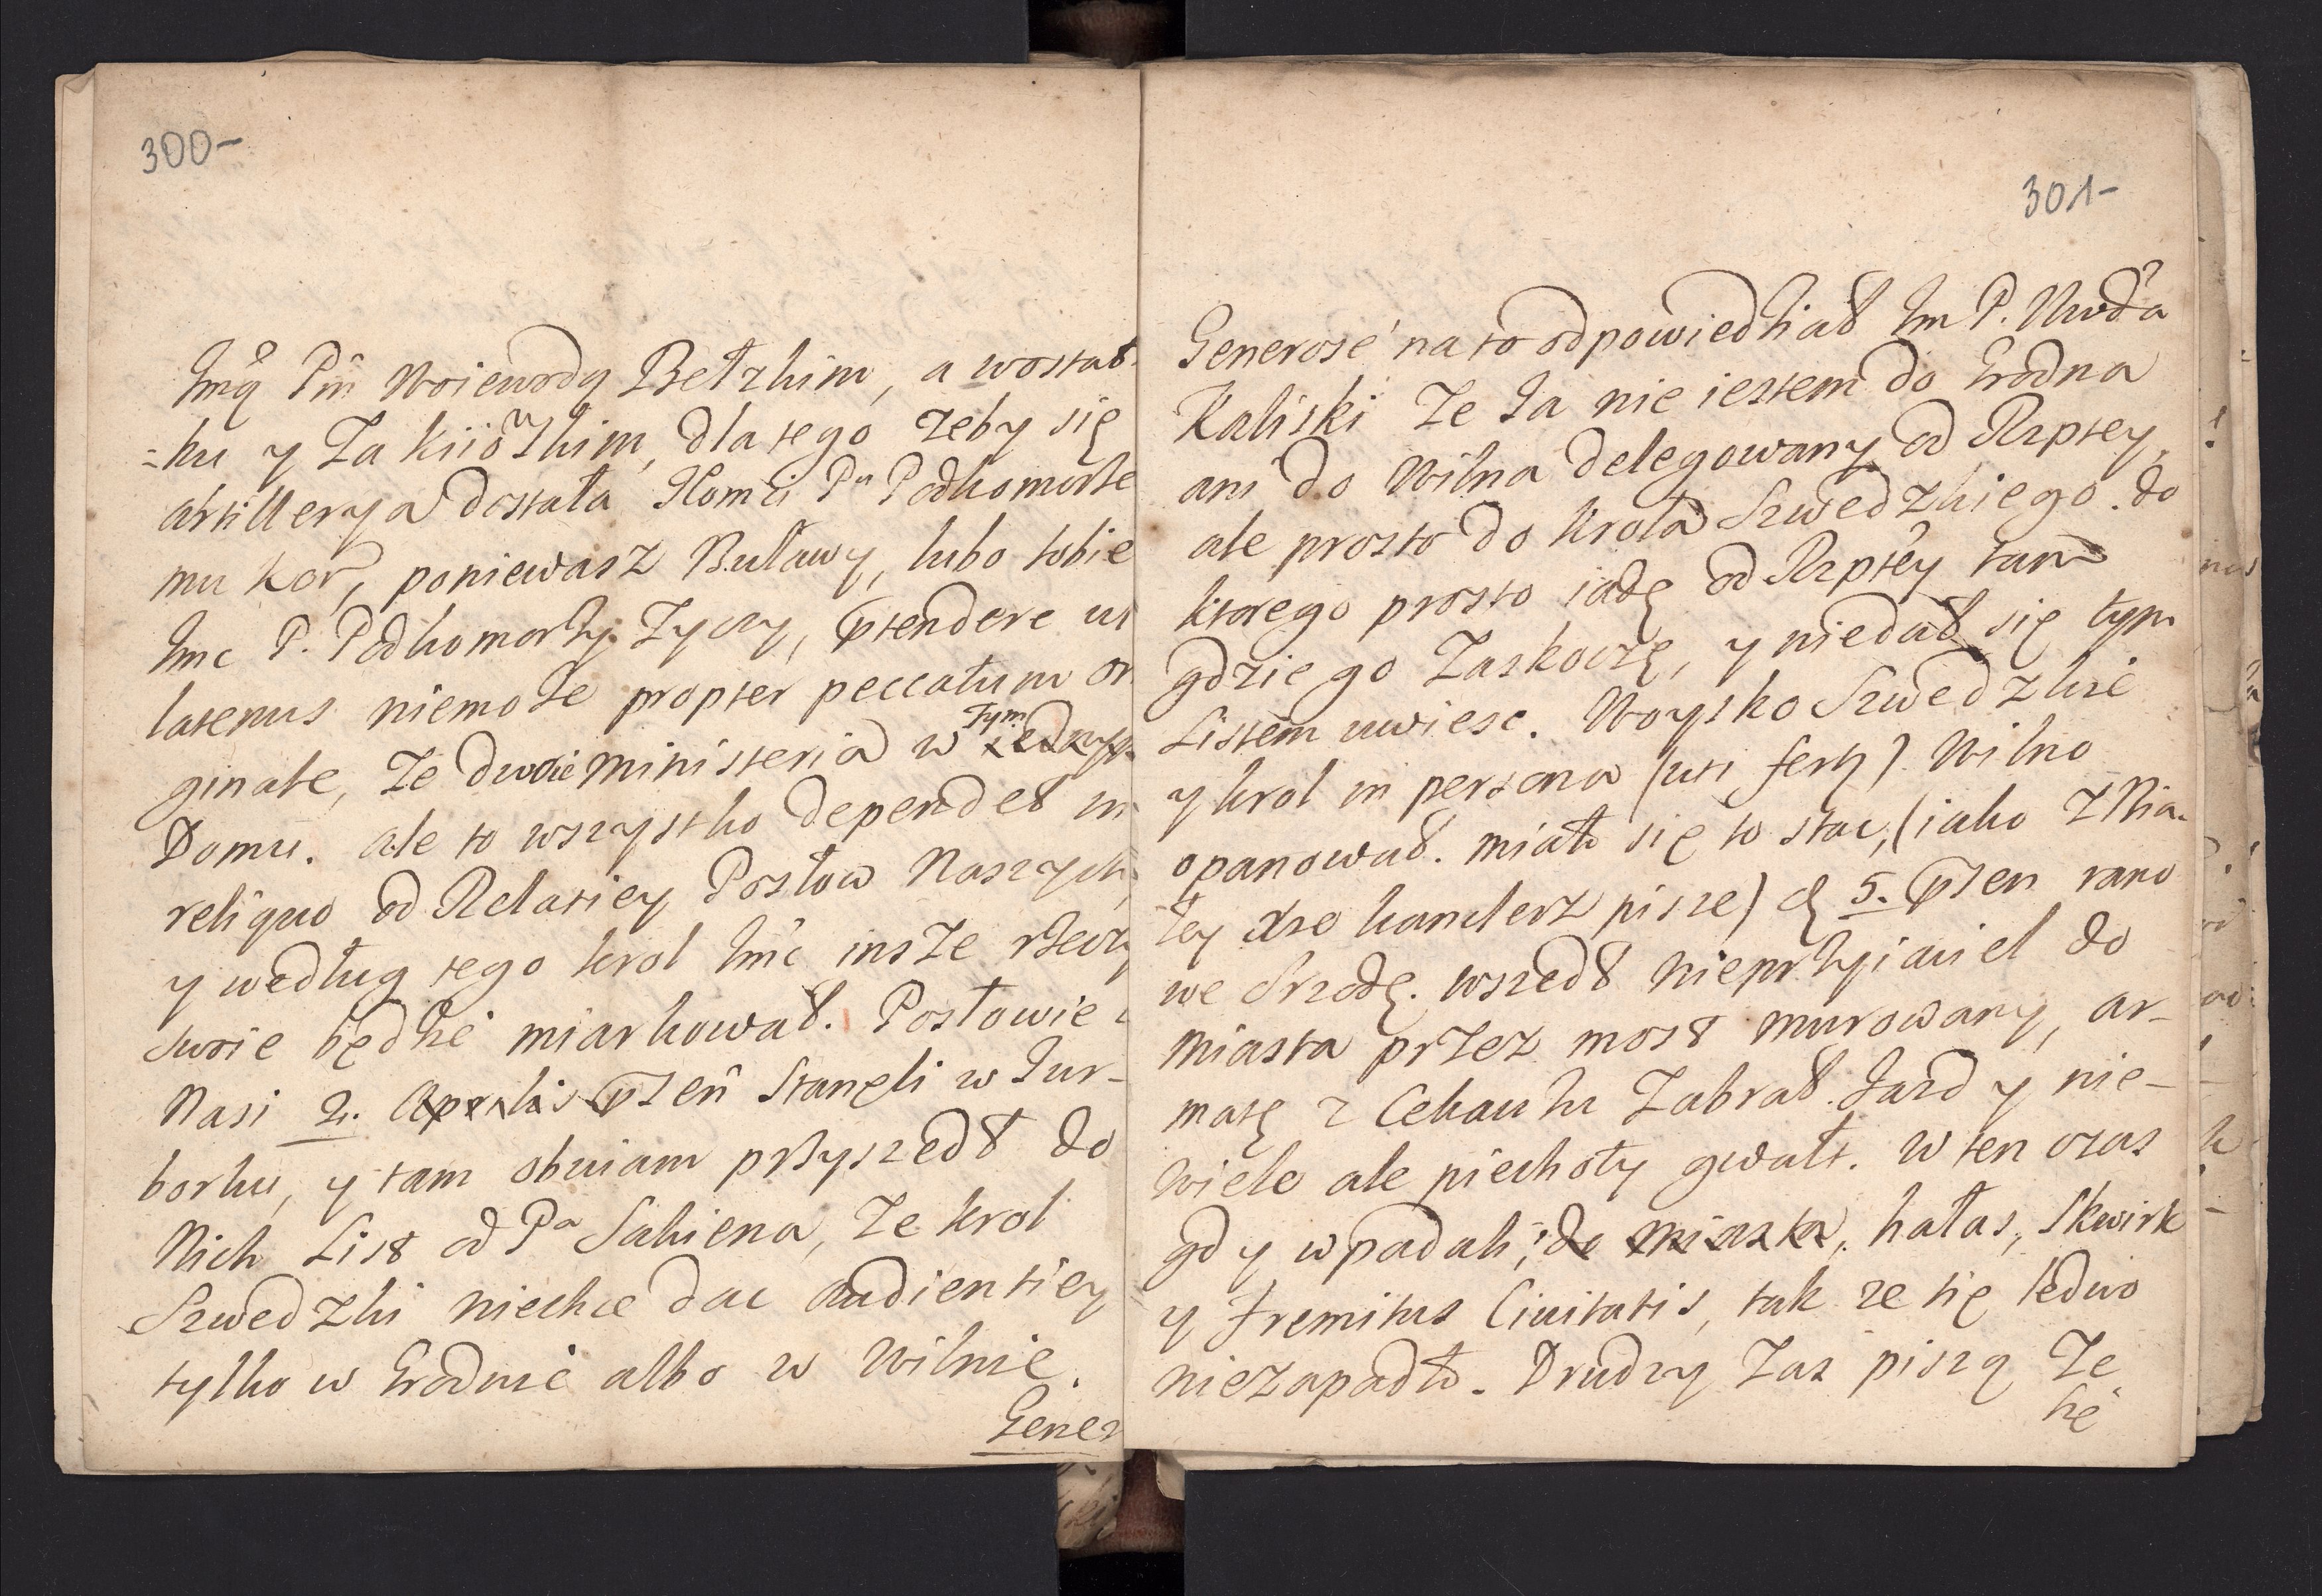 300-
Jmći Pm Woiewodą Bełzkim, a wostat-
=ku y Zakiiowskim, dlatego zeby się
artillerya dostała Ilomci Pu Podkomorze
mu Kor, poniewasz Buławy, lubo sobie
Jmc P. Podkomorzy Zyczy, prtendere ul
latenus niemoze propter peccatum ori
ginale, ze dwoie ministeria w tym iednym
Domu. ale to wszystko dependet in
reliquo od Relatiey Posłow Naszych,
y według tego krol Jmc insze rzeczy
swoie będzie miarkował. Posłowie
Nasi 2. Aprilis przen Stanęli w Jur-
borku, y tam obuiam przyszedł do
Nich List od Pa Sakiena, ze krol
Szwedzki niechce dac audientiey
tylko w Grodnie albo w Wilnie.
Gener
301-
Generose, na to odpowiedział Jm P. Wwda
Kaliski ze Ja nie iestem do Grodna
ani do Wilna delegowany od Rzptey,
ale prosto do Krola Szwedzkiego. do
ktorego prosto iadę od Rzptey tam
gdzie go Zaskoczę, y niedał się tym
Listem uwiesc. Woysko Szwedzkie
y krol in persona (uti fert) Wilno
opanował. miało się to stac, (iako z Bia-
łey Xże kanclerz pisze) d 5. prsen rano
we Srzodę. wszedł nieprzyiaciel do
miasta przez most murowany, ar-
matę z Cekauzu Zabrał. Jazd y nie-
wiele ale piechoty gwałt. w ten czas
gdy wpadali, do miasta, hałas, skwirk
y fremitus Ciuitatis, tak ze się ledwo
niezapadło. Drudzy Zas piszą Ze
że